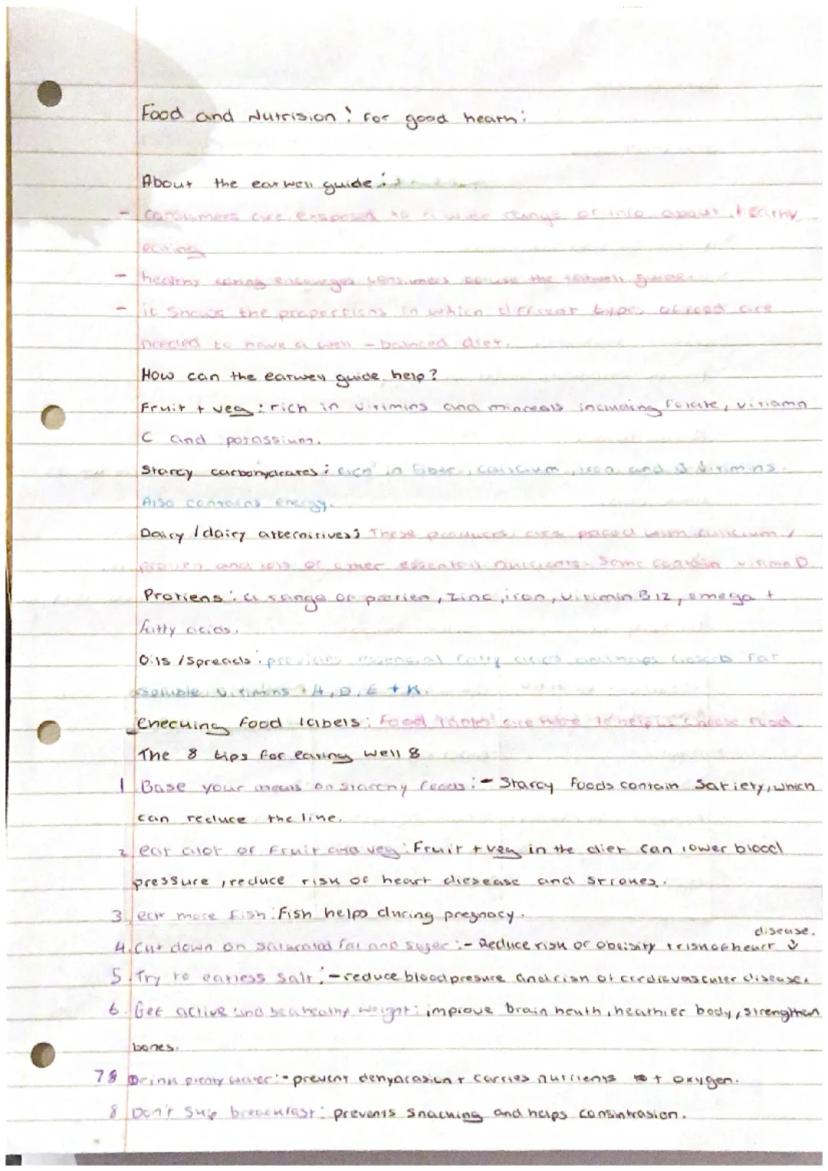 Food and Nutrision: for good hearth:
About the earwell guide:
- consumers are exsposed to a wide range of info about healthy
eating
- healthy eating encourages consumers to use the eatwell guide.
- it shows the proportions in which different type of food are
needed to have a well-balnced diet.
How can the earwell guide help?
Fruit + veg: rich in virimins and minerals including Folate, viriamn
C and porassium.
Starcy carbohydrates: rich in fiber, calicium, iron and B virimins.
Also contains energy.
Dairy / dairy arternitives: These products are paced with calicium,
protien and lots of other essentail nutrients. Some contain virimn D.
Protiens: a range of protien, zinc, iron, virimin B12, omega +
fatty acids.
Oils / Spreads: provides essencial fatty acids and fat
soluble virimins A, D, E + K.
Checking food labels: Food labels are here to help us choose food
The 8 tips for earing well 8
1 Base your meals on starchy foods: - Starcy foods contain satiety, which
can reduce the line.
2 ear alot of Fruit and veg: Fruit + veg in the dier can lower blood
pressure, reduce risk of heart diesease and strokes.
3. ear more fish: Fish helps during pregnacy.
4. Cut down on saturated fat and suger: - Reduce risk of obisity + risk of heart disease.
5. Try to earless salt: - reduce blood presure and risn of cardiovascular disease.
6. Get active and be a healthy weight: improve brain heath, healthier body, strengthen
bones.
78 Drink plenty water: - prevent dehyarasion + carries nutrients + oxygen.
8 Don't skip breackfast: prevents snacking and helps consintrasion.